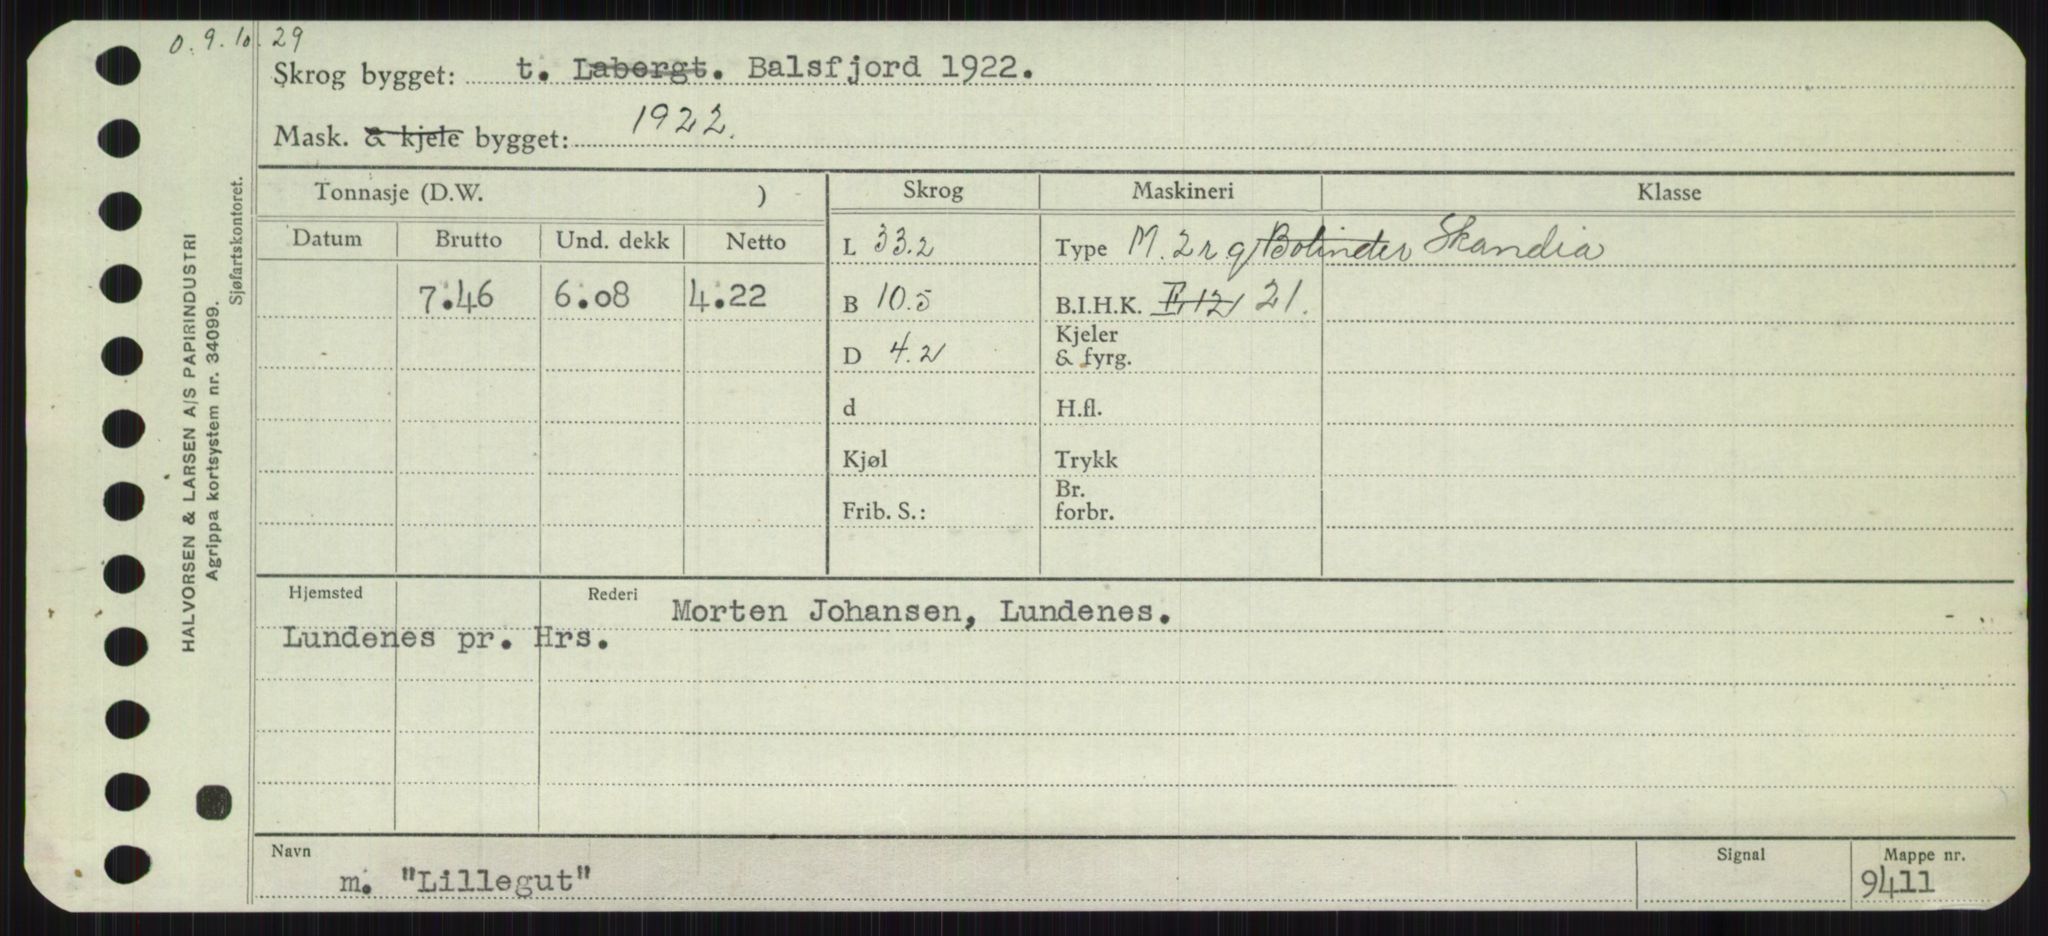 0. 9. 10. 29
Skrog bygget: t. Labergt. Balsfjord 1922.
Mask. & kjele bygget: 1922.
Tonnasje (D.W. ) Skrog Maskineri Klasse
Datum Brutto Und. dekk Netto L 33.2 Type M. 2 r g Bolinder Skandia
7.46 6.08 4.22 B 10.5 B.I.H.K. 21.
D 4.2 Kjeler
& fyrg.
d H.fl.
Kjøl Trykk
Frib. S.: Br.
forbr.
Hjemsted Rederi Morten Johansen, Lundenes.
Lundenes pr. Hrs.
Navn Signal Mappe nr.
m. "Lillegut" 9411
HALVORSEN & LARSEN A/S PAPIRINDUSTRI
Agrippa kortsystem nr. 34099.
Sjøfartskontoret.